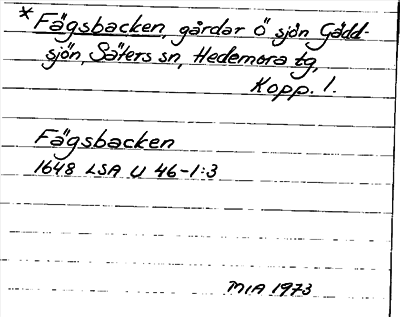 * Fägsbacken, gårdar ö sjön Gådd-
sjön, Säters sn, Hedemora tg,
Kopp. l.
Fägsbacken
1648 LSA U 46-1:3
MIA 1973